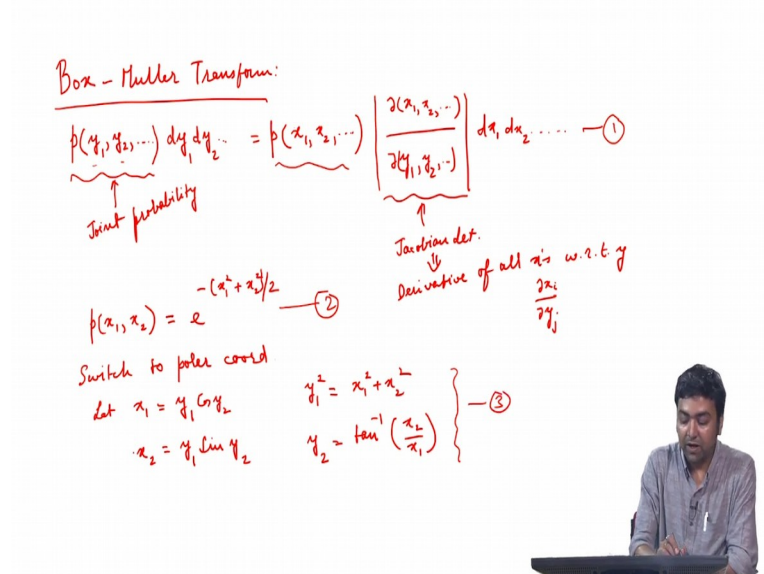 Box-Muller Transform:
p(y₁, y₂, ....) dy₁ dy₂ ... = p(x₁, x₂, ...) |∂(x₁, x₂, ...) / ∂(y₁, y₂, ...)| dx₁ dx₂ ..... — ①
Joint probability
Jacobian det.
⇓
Derivative of all x's w.r.t. y
∂xᵢ/∂yⱼ
p(x₁, x₂) = e^{-(x₁² + x₂²)/2} — ②
Switch to polar coord
Let x₁ = y₁ Cos y₂
y₁² = x₁² + x₂²
x₂ = y₁ Sin y₂
y₂ = tan⁻¹ (x₂/x₁)
} — ③